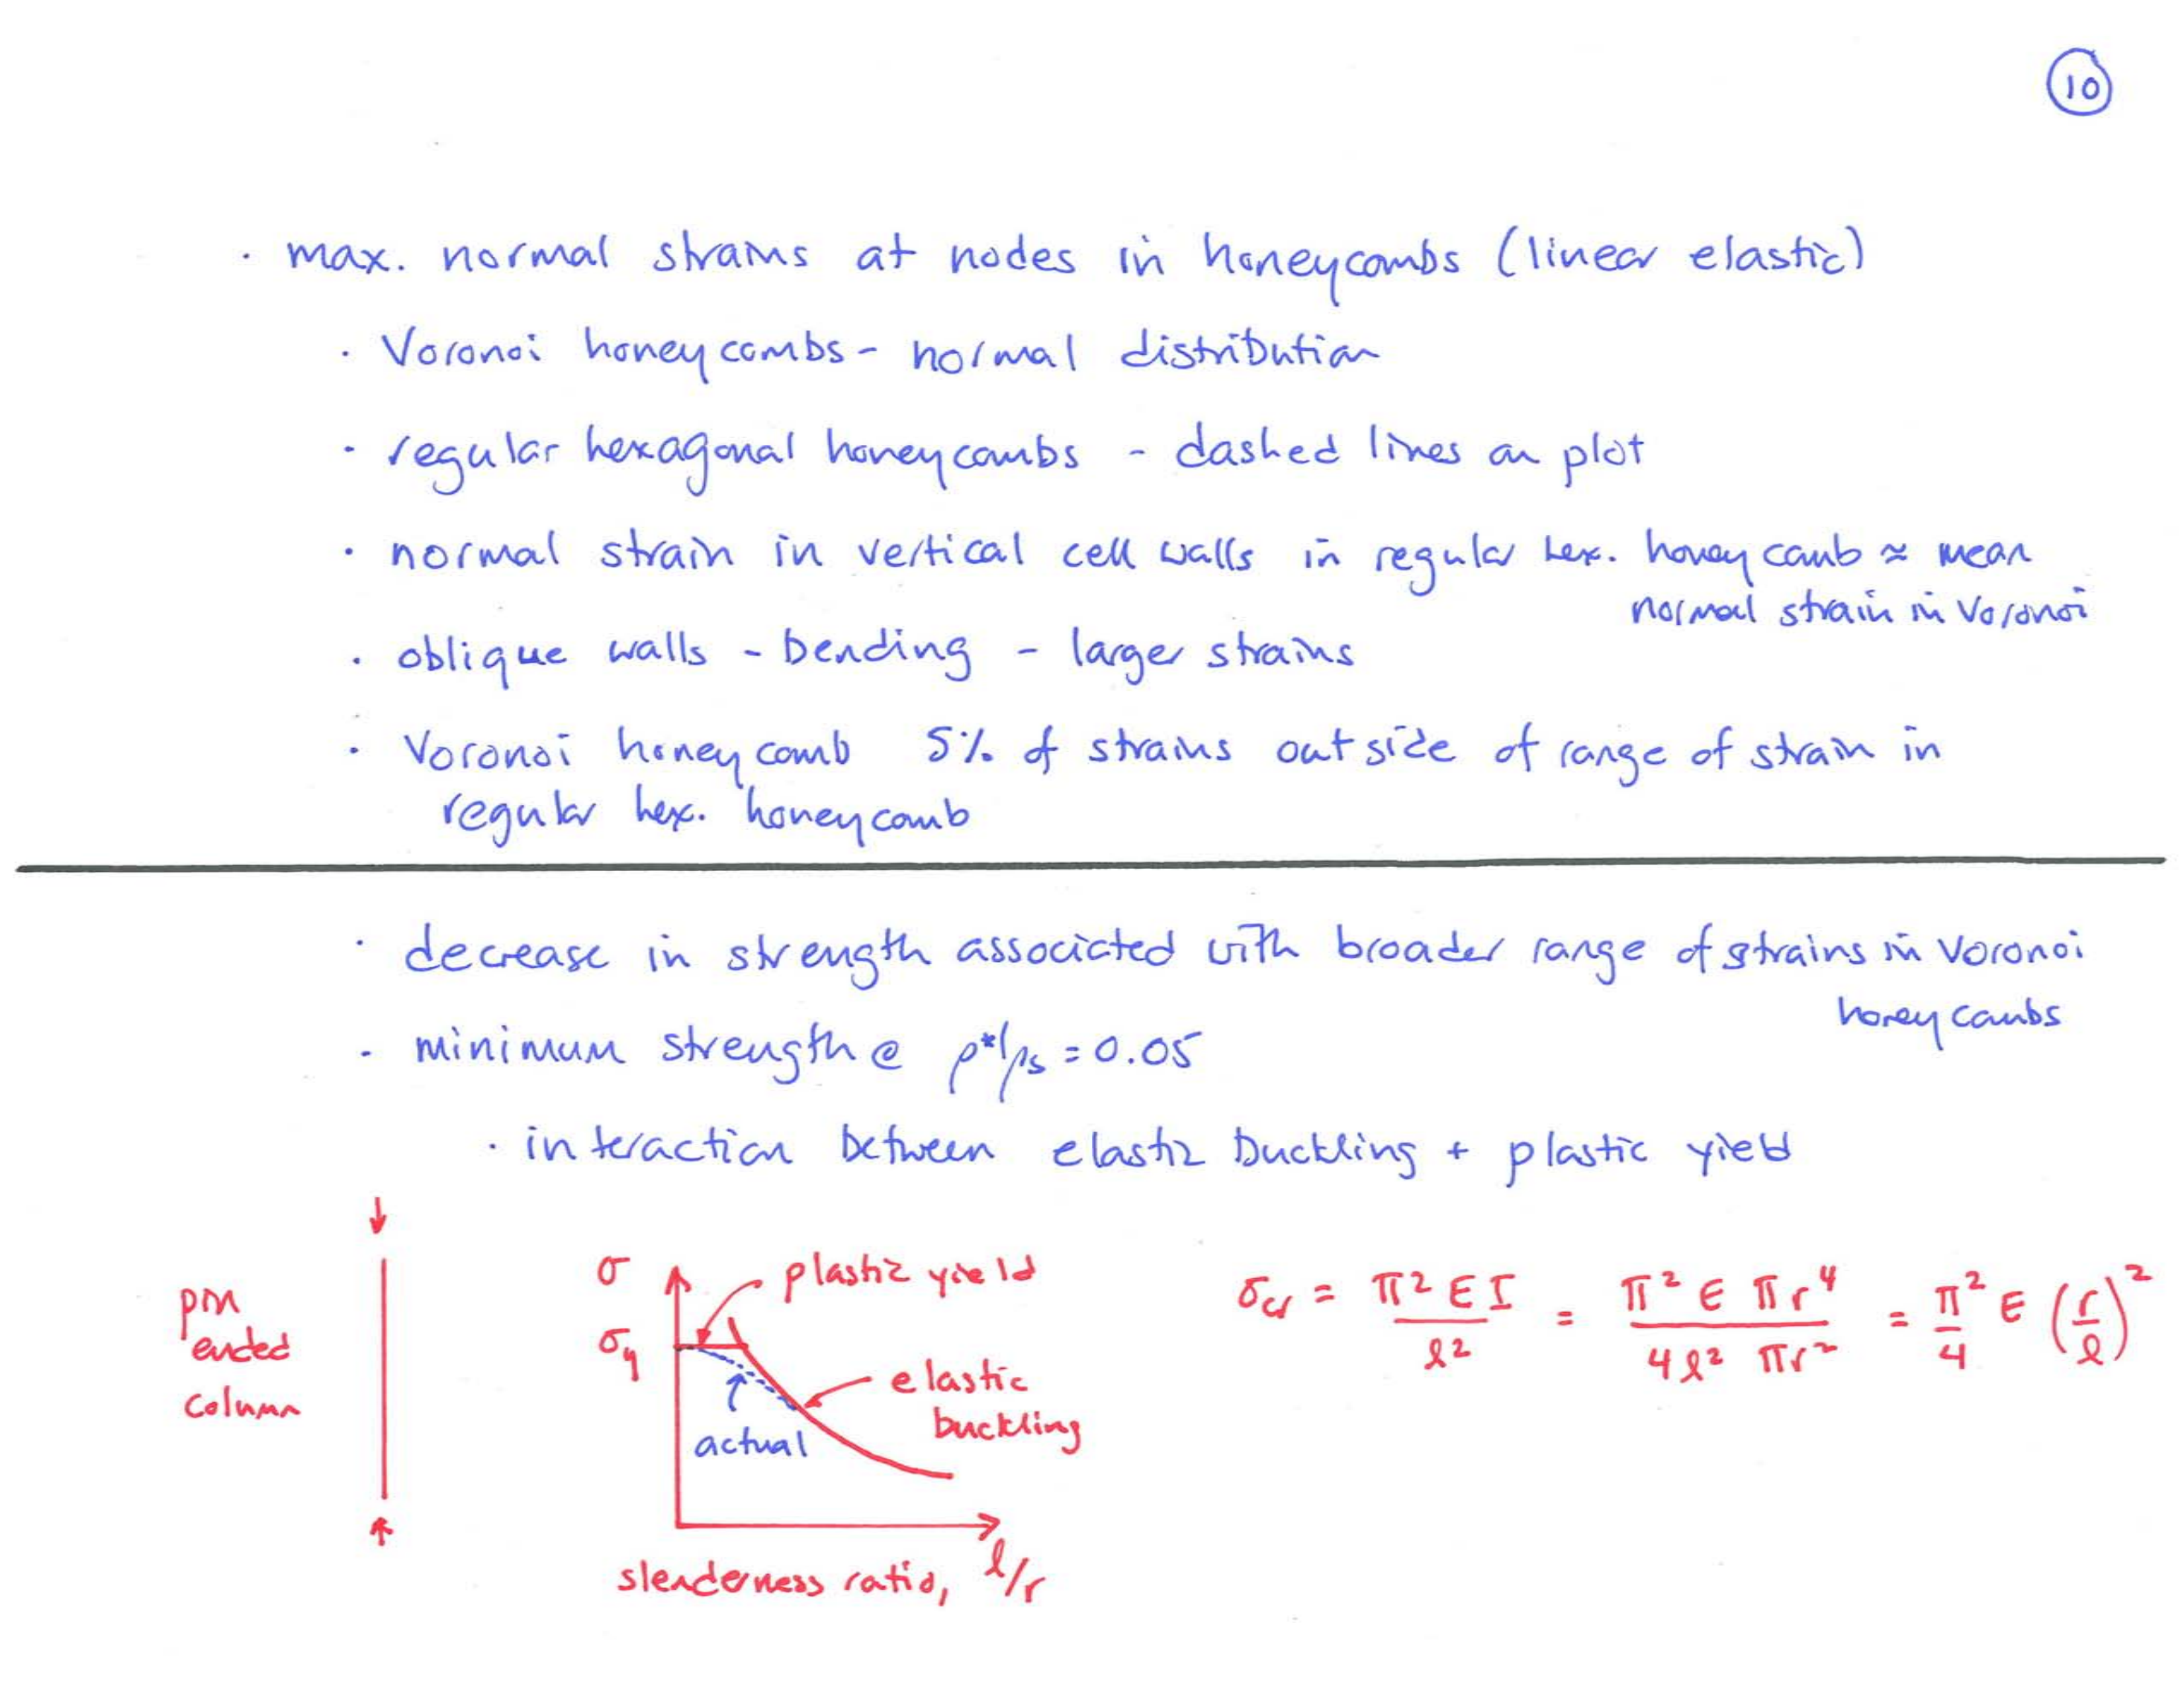 10
· max. normal strains at nodes in honeycombs (linear elastic)
· Voronoi honeycombs - normal distribution
· regular hexagonal honeycombs - dashed lines on plot
· normal strain in vertical cell walls in regular hex. honeycomb ≈ mean
normal strain in Voronoi
· oblique walls - bending - larger strains
· Voronoi honeycomb 5% of strains outside of range of strain in
regular hex. honeycomb
· decrease in strength associated with broader range of strains in Voronoi
honeycombs
· minimum strength @ ρ*/ρs = 0.05
· interaction between elastic buckling + plastic yield
pin
ended
column
σ
plastic yield
σy
elastic
buckling
actual
slenderness ratio, l/r
σcr = π² E I / l² = π² E π r⁴ / 4 l² π r² = π²/4 E (r/l)²